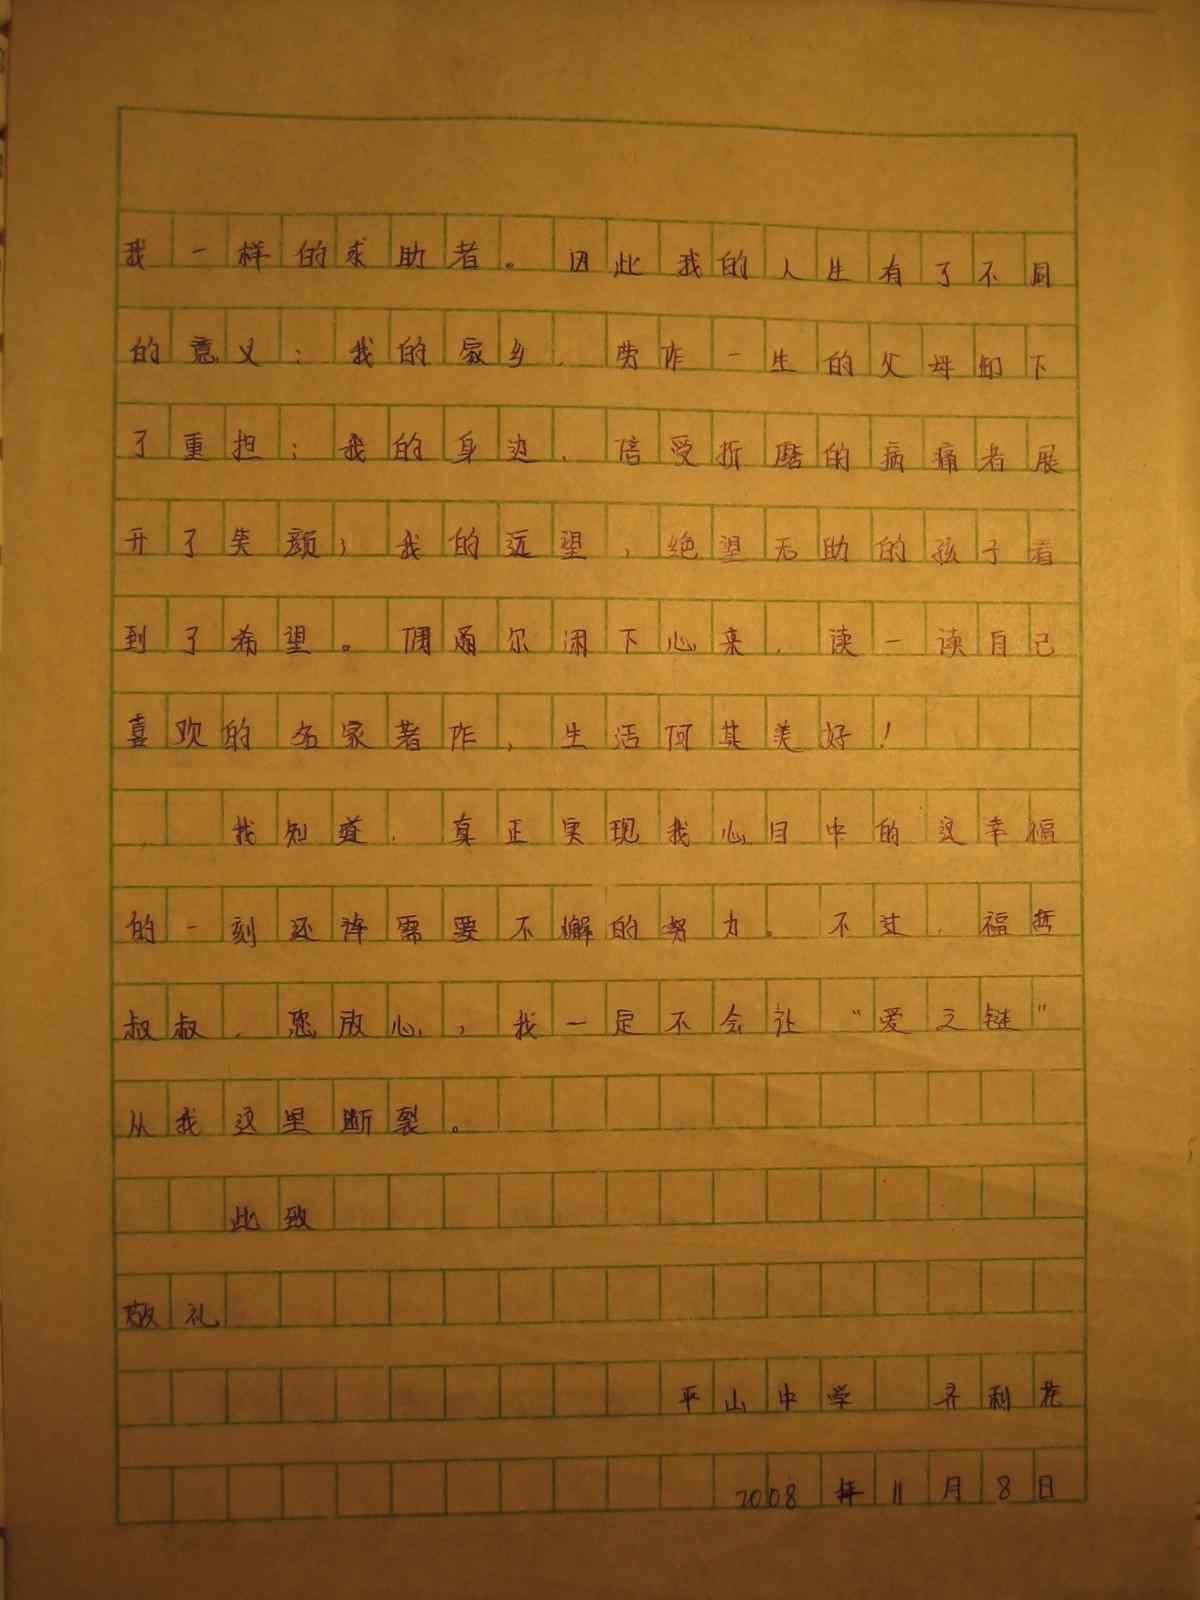 我一样的求助者。因此我的人生有了不同
的意义：我的家乡，劳作一生的父母卸下
了重担；我的身边，倍受折磨的病痛者展
开了笑颜；我的远望，绝望无助的孩子看
到了希望。偶尔闲下心来，读一读自己
喜欢的名家著作，生活何其美好！
我知道，真正实现我心目中的这幸福
的一刻还许需要不懈的努力。不过，福哲
叔叔，您放心，我一定不会让“爱之链”
从我这里断裂。
此致
敬礼
平山中学 齐利花
2008年11月8日